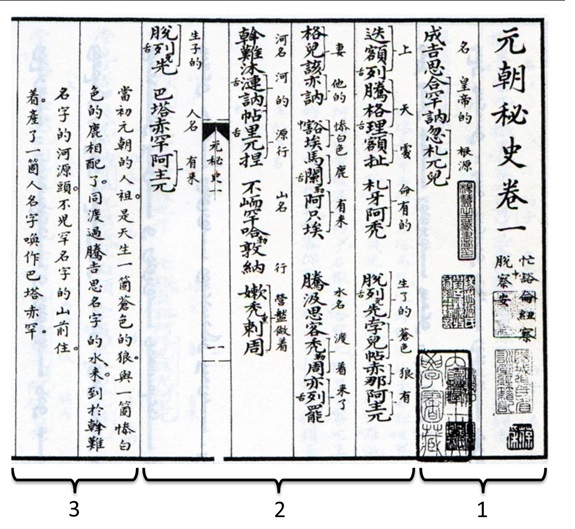 元朝秘史卷一
忙豁侖紐察
脫中察安
名 皇帝的 根源
成吉思合罕訥忽札兀兒
上 天 處 命有的 生了的 蒼色 狼 有
迭額列舌騰格理額扯 札牙阿禿 脫列舌克孛兒帖赤那阿主兀
妻 他的 慘白色 鹿 有來 水名 渡着 來了
格兒該亦訥 豁埃馬闌勒阿只埃 騰汲思客禿勒周亦列舌罷
河名 河的 源行 山名 行 營盤做着
斡難沐漣舌訥帖里舌兀捏 不峏罕哈勒敦納 嫩禿黑剌周
元秘史一
一
生子的 人名 有來
脫列舌光 巴塔赤罕阿主兀
當初元朝的人祖。是天生一箇蒼色的狼。與一箇慘白
色的鹿相配了。同渡過騰吉思名字的水。來到於斡難
名字的河源頭。不兒罕名字的山前住
着。產了一箇人名字喚作巴塔赤罕。
3 2 1